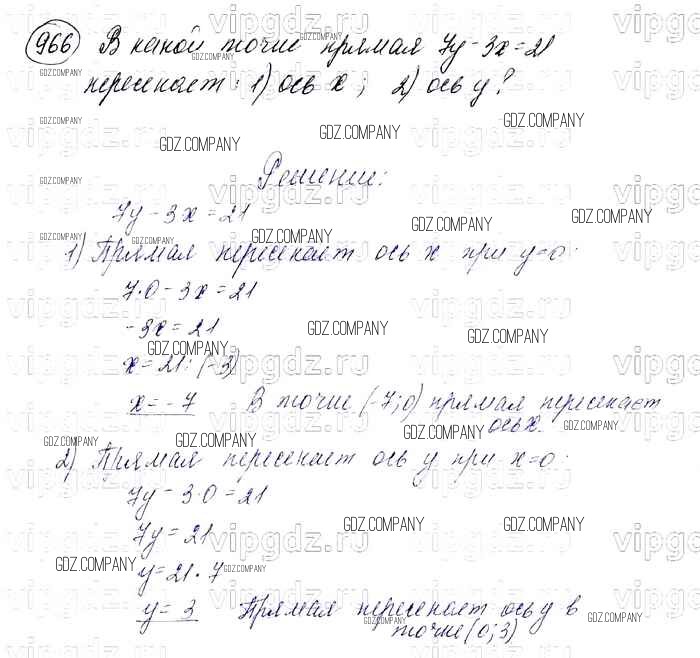 966 В какой точке прямая 7y - 3x = 21
пересекает: 1) ось x; 2) ось y?
Решение:
7y - 3x = 21
1) Прямая пересекает ось x при y=0.
7·0 - 3x = 21
-3x = 21
x = 21 : (-3)
x = -7 В точке (-7; 0) прямая пересекает
ось x.
2) Прямая пересекает ось y при x=0.
7y - 3·0 = 21
7y = 21
y = 21 · 7
y = 3 Прямая пересекает ось y в
точке (0; 3)
GDZ.COMPANY
vipgdz.ru